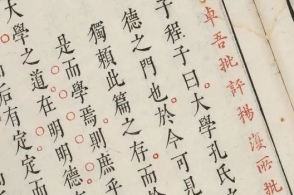 卓吾批評楊復所批
子程子曰大學孔氏
德之門也於今可見
獨賴此篇之存而
是而學焉則庶乎
大學之道在明明德
后有定定而